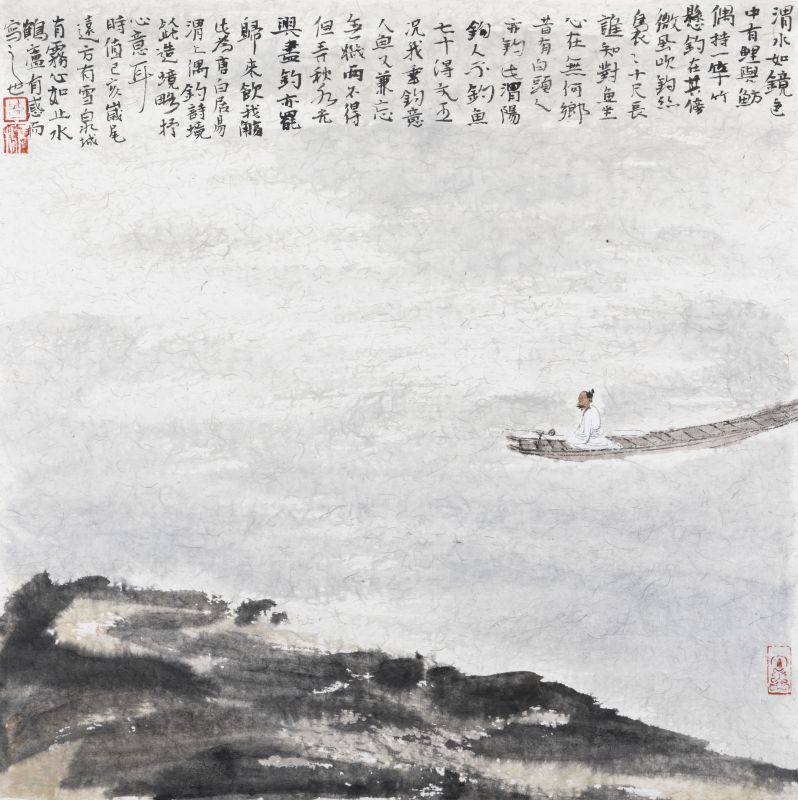 渭水如鏡色
中有鯉與魴
偶持一竿竹
懸釣在其傍
微風吹釣絲
裊〻十尺長
誰知對魚坐
心在無何鄉
昔有白頭人
亦釣此渭陽
釣人不釣魚
七十得文王
況我垂釣意
人魚又兼忘
無機兩不得
但弄秋水光
興盡釣亦罷
歸來飲我觴
此為唐白居易
渭上偶釣詩境
此造境略抒
心意耳
時值己亥歲尾
遠方有雪泉城
有霧心如止水
鶴廬有感而
寫之也